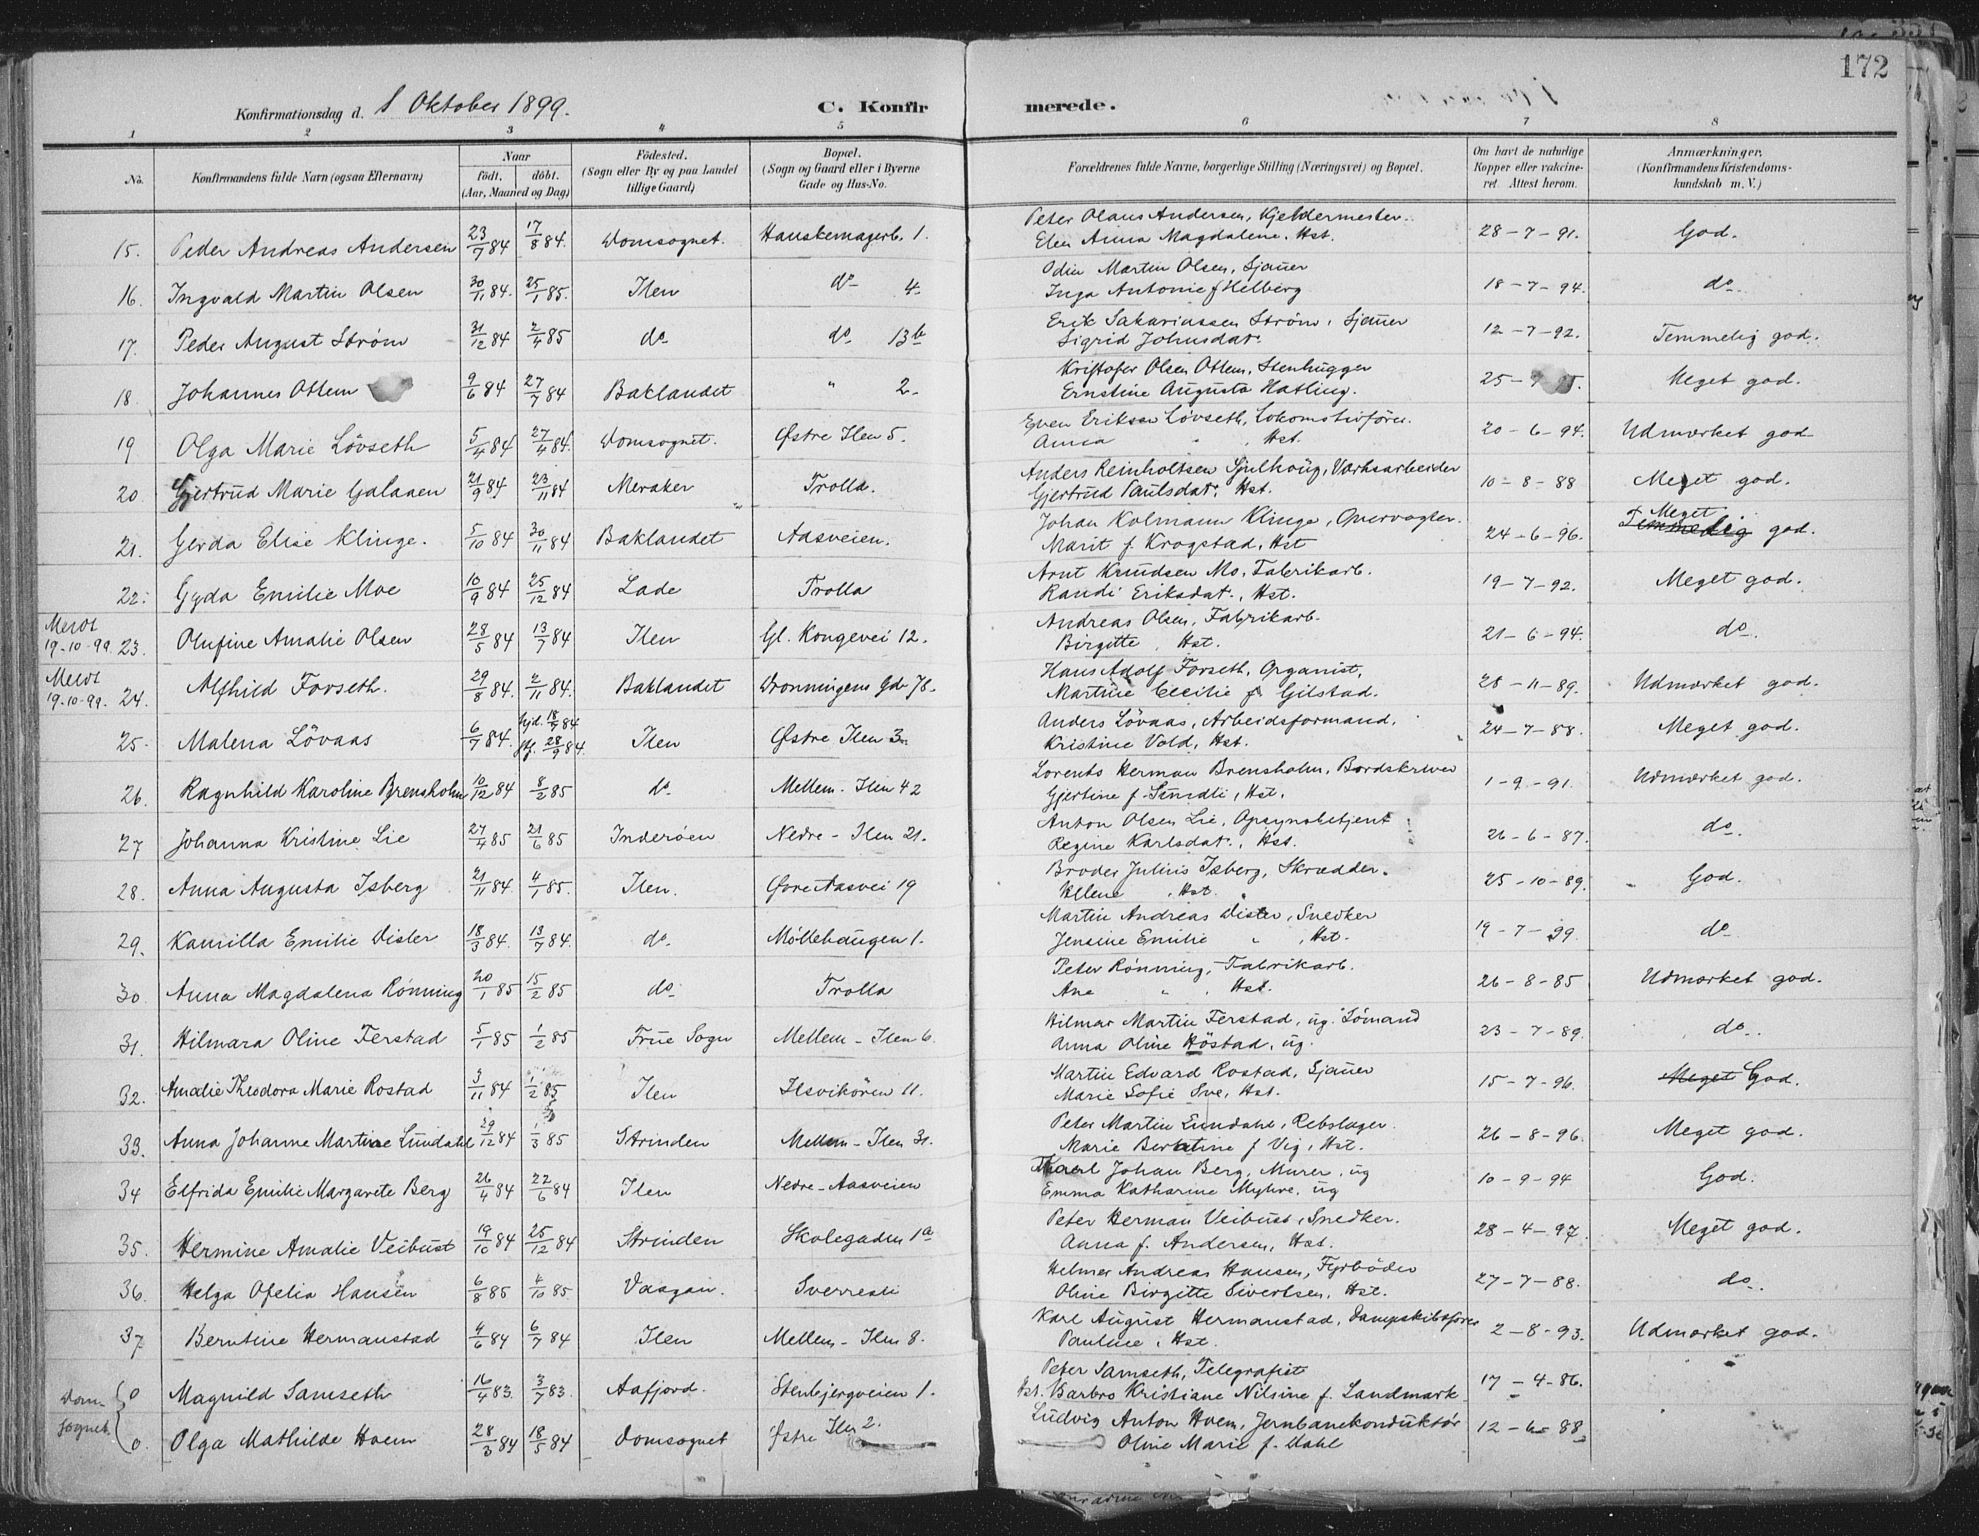 172
Konfirmationsdag d. 1 Oktober 1899.
C. Konfirmerede.
1 2 3 4 5 6 7 8
No. Konfirmandens fulde Navn (ogsaa Efternavn) Naar födt. döbt. (Aar, Maaned og Dag) Födested. (Sogn eller By og paa Landet tillige Gaard) Bopæl. (Sogn og Gaard eller i Byerne Gade og Hus-No. Forældrenes fulde Navne, borgerlige Stilling (Næringsvei) og Bopæl. Om havt de naturlige Kopper eller vakcineret. Attest herom. Anmærkninger. (Konfirmandens Kristendomskundskab m. V.)
15. Peder Andreas Andersen 23/7 84 17/8 84. Domsognet. Hanskemagerb. 1. Peter Olaus Andersen, Kjeldermester. 28-7-91. God.
Elen Anna Magdalene, Hst.
16. Ingvald Martin Olsen 30/11 84. 25/1 85. Ilen do 4. Odin Martin Olsen, Sjauer 18-7-94. do.
Inga Antonie f Helberg
17. Peder August Ström 31/12 84 2/4 85 do do 13b Erik Sakariassen Ström, Sjauer 12-7-92. Temmelig god.
Sigrid Johnsdat.
18. Johannes Ottem 9/6 84 27/7 84 Baklandet " 2. Kristofer Olsen Ottem, Stenhugger 25-7 Meget god.
Ernstine Augusta Hatling.
19 Olga Marie Lövseth 5/4 84 27/4 84. Domsognet. Østre Ilen 5. Even Eriksen Lövseth, Lokomotivförer. 20-6-94. Udmærket god
Anna " , Hst.
20. Gjertrud Marie Galaaen 21/9 84 23/11 84 Meraker Trolla. Anders Reinholtsen Sjulhoug, Værksarbeider 10-8-88 Meget god.
Gjertrud Paulsdat. Hst.
21. Gerda Elise Klinge. 5/10 84 30/11 84 Baklandet Aasveien. Johan Kolmann Klinge, Overvogter. 24-6-96. Temmelig Meget god.
Marit f. Krogstad, Hst
22. Gyda Emilie Moe 10/9 84 25/12 84 Lade Trolla Arnt Knudsen Mo, Fabrikarb. 19-7-92. Meget god.
Randi Eriksdat., Hst.
Meldt 19-10-99. 23. Olufine Amalie Olsen 28/5 84 13/7 84 Ilen Gl. Kongevei 12. Andreas Olsen, Fabrikarb. 21-6-94. do.
Birgitte , Hst.
Meldt 19-10-99. 24. Alfhild Forseth. 29/8 84. 2/11 84. Baklandet Dronningens Gd 7b. Hans Adolf Forseth, Organist, 28-11-89. Udmærket god.
Martine Cecilie f Gilstad.
25. Malena Lövaas 6/7 84. hjd. 18/7 84 stf. 28/9 84. Ilen Østre Ilen 3. Anders Lövaas, Arbeidsformand, 24-7-88. Meget god.
Kristine Vold, Hst.
26. Ragnhild Karoline Brensholm 10/12 84 8/2 85 do. Mellem-Ilen 42 Lorents Herman Brensholm, Bordskriver 1-9-91. Udmærket god.
Gjertine f. Sundli, Hst.
27 Johanna Kristine Lie 27/4 85 21/6 85 Inderöen Nedre-Ilen 21. Anton Olsen Lie, Opsynsbetjent 26-6-87. do.
Regine Karlsdat., Hst.
28. Anna Augusta Isberg 21/11 84 4/1 85. Ilen. Øvre Aasvei 19 Broder Julius Isberg, Skrædder. 25-10-89. God.
Ellene , Hst.
29. Kamilla Emilie Dister 18/3 84. 13/7 84. do. Möllehaugen 1. Martin Andreas Dister, Snedker 19-7-99. do
Jensine Emilie " , Hst.
30. Anna Magdalena Rönning 20/1 85 15/2 85 do. Trolla Peter Rönning, Fabrikarb. 26-8-85 Udmærket god.
Ane " , Hst.
31. Hilmara Oline Ferstad 5/1 85 1/2 85 Frue Sogn Mellem-Ilen 6. Hilmar Martin Ferstad, ug. Sömand 23-7-89. do.
Anna Oline Höstad, ug.
32. Amalie Theodora Marie Rostad 3/11 84 1/2 85 Ilen Ilsvikören 11. Martin Edvard Rostad, Sjauer 15-7-96. Meget God.
Marie Sofie Sve, Hst.
33. Anna Johanne Martine Lundahl 29/12 84 1/3 85 Strinden Mellem-Ilen 31. Peter Martin Lundahl, Rebslager. 26-8-96. Meget god.
Marie Berntine f Vig, Hst.
34 Elfrida Emilie Margarete Berg 26/4 84 22/6 84 Ilen Nedre-Aasveien Karl Johan Berg, Murer, ug 10-9-94 God.
Emma Katharine Myhre, ug
35. Hermine Amalie Veibust 19/10 84 25/12 84 Strinden Skolegaden 1a Peter Herman Veibust, Snedker. 28-4-97. Meget god.
Anna f. Andersen, Hst.
36. Helga Ofelia Hansen 6/8 85 4/10 85. Vaagan. Sverresli Helmer Andreas Hansen, Fyrböder 27-7-88. do.
Oline Birgitte Sivertsen, Hst.
37 Berntine Hermanstad 4/6 84 6/7 84 Ilen Mellem-Ilen 8. Karl August Hermanstad, Dampskibsförer 2-8-93. Udmærket god.
Pauline, Hst.
Domsognet. 0 Magnild Samseth 16/4 83. 3/7 83. Aafjord. Stenbjergveien 1. Peter Samseth, Telegrafist 17-4-86.
Hst. Barbro Kristiane Nilsine f. Landmark
0. Olga Mathilde Hoem 28/3 84 18/5 84 Domsognet Østre Ilen 2. Ludvig Anton Hoem, Jernbanekonduktör 12-6-88
Oline Marie f. Dahl